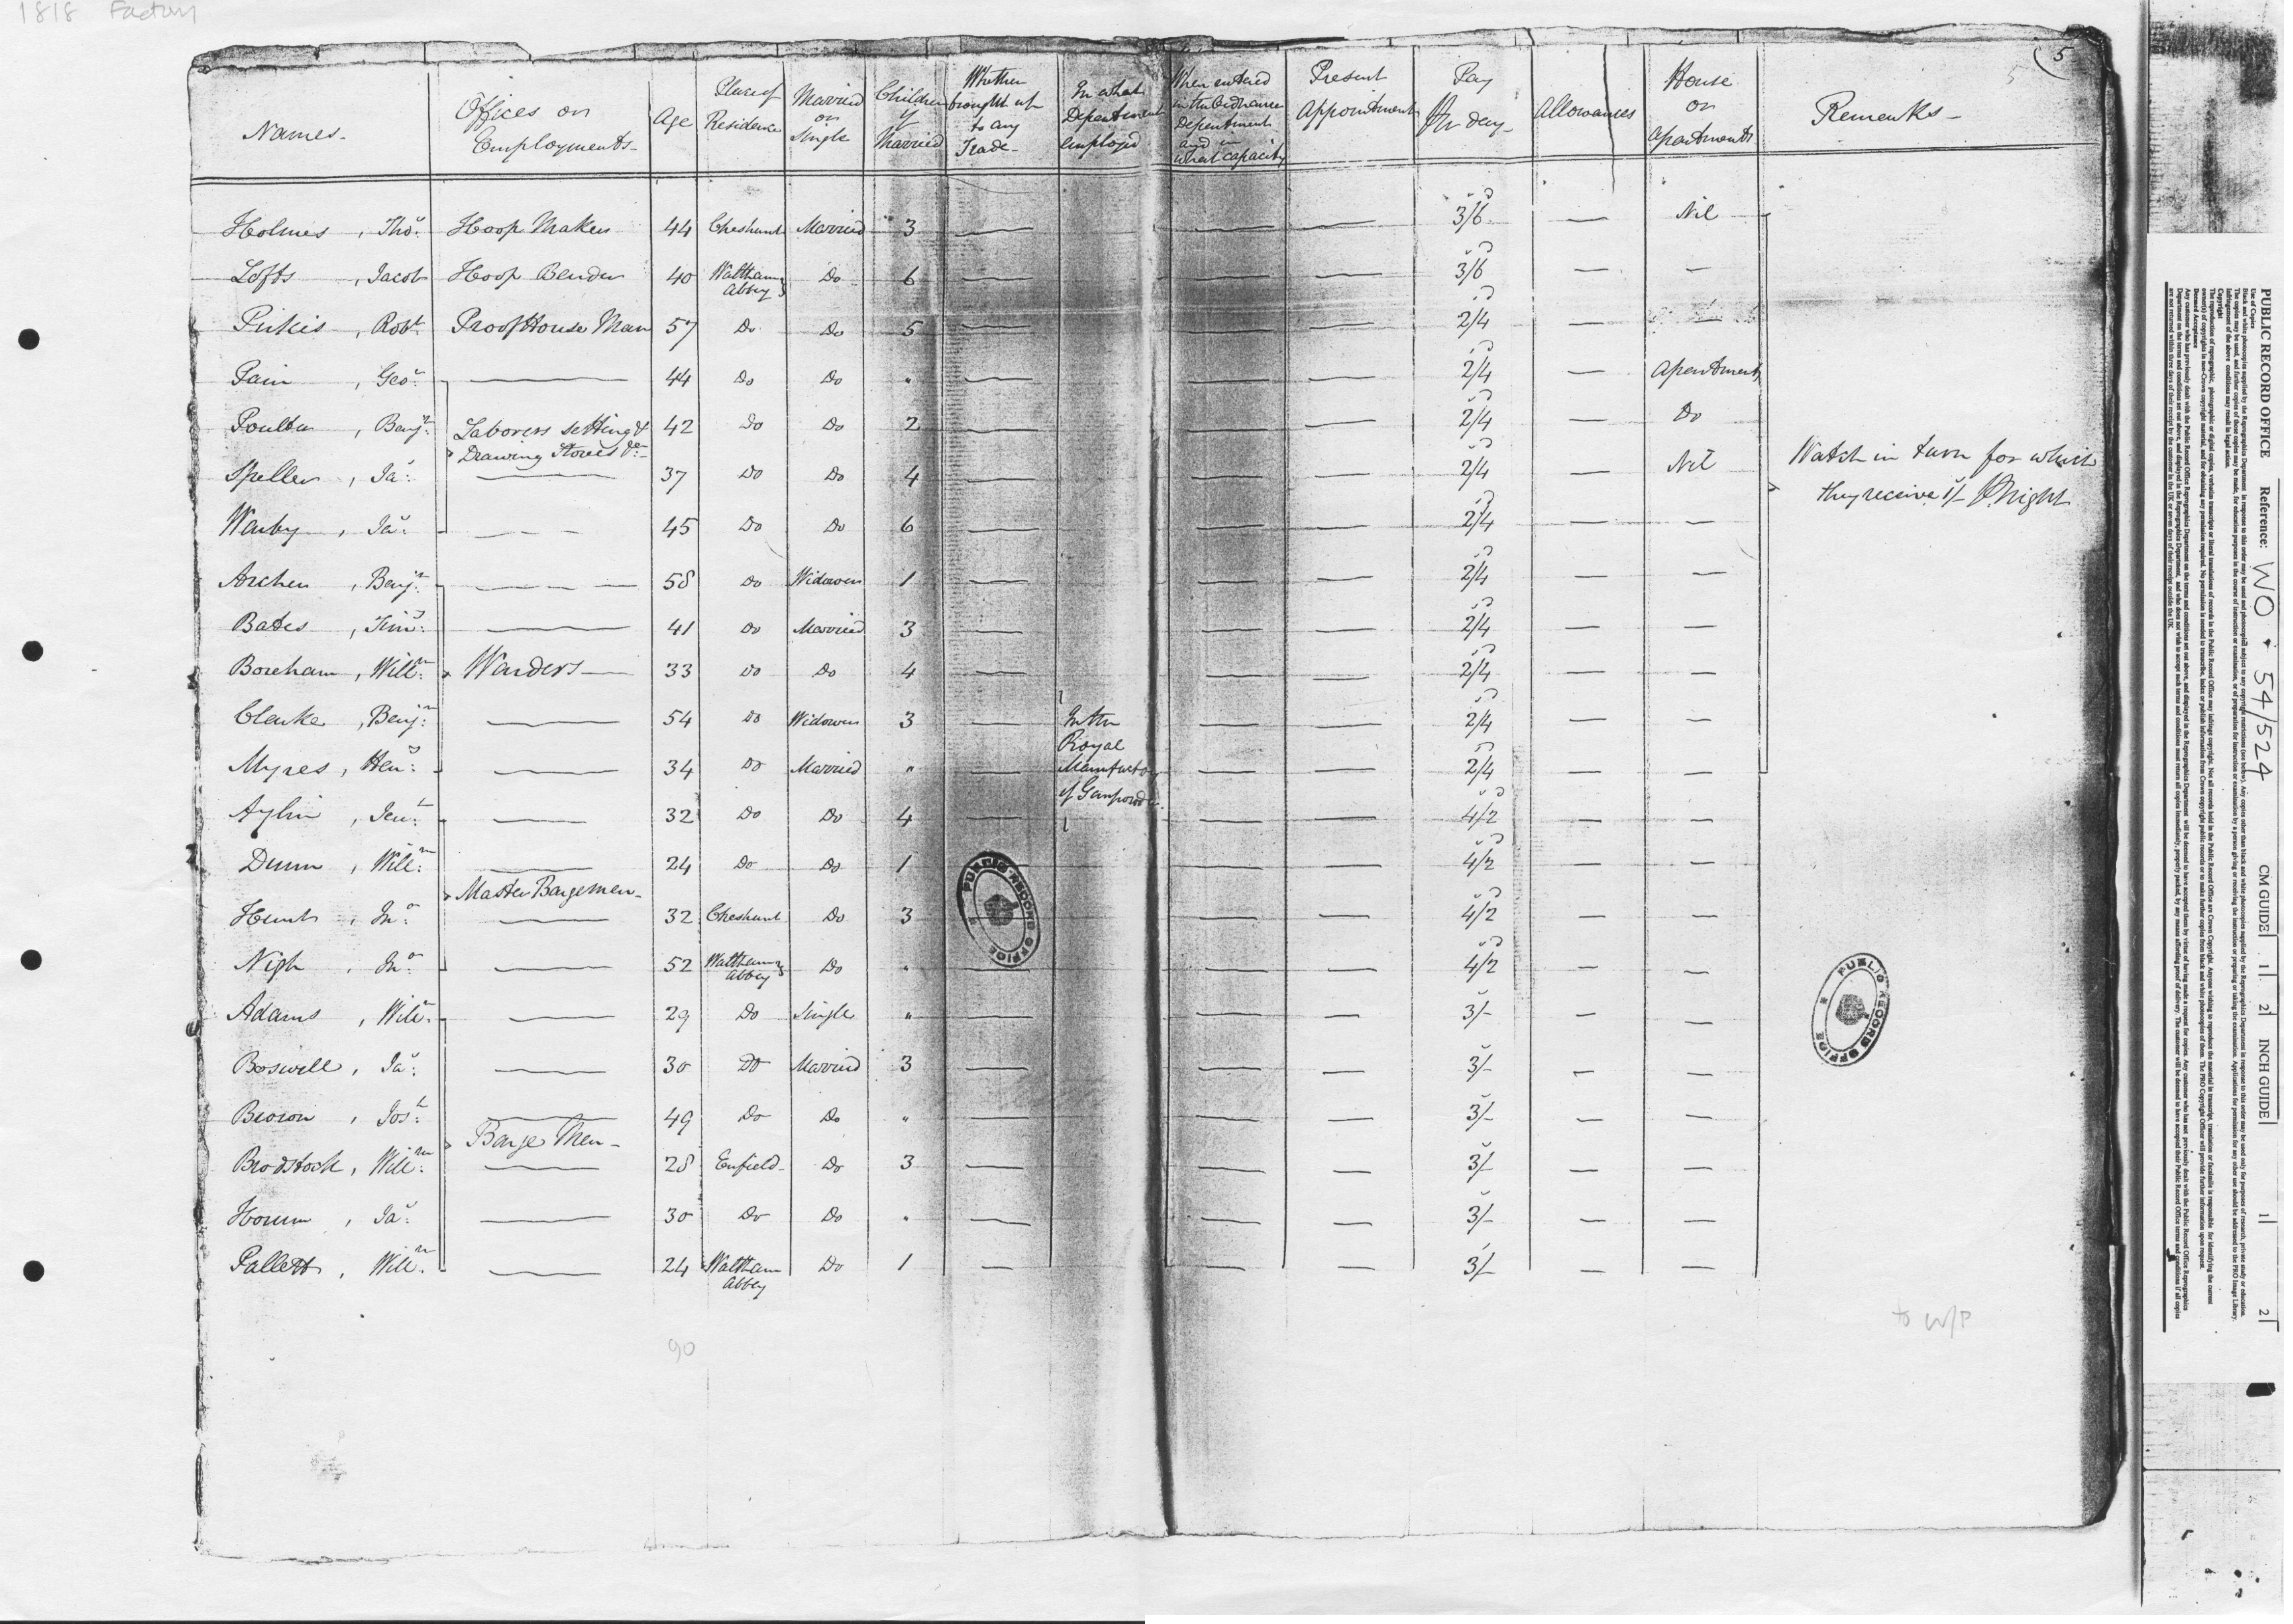 1818 Factory
5
5
Names- | Offices or Employments- | Age | Place of Residence | Married or Single | Children if Married | Whether brought up to any Trade- | In what Department Employed | When entered in the Ordnance Department and in what capacity | Present Appointment | Pay Pr day- | Allowances | House or Apartments | Remarks-
Holmes, Thos. | Hoop Maker | 44 | Cheshunt | Married | 3 | — | — | — | 3/6 | — | Nil
Lofts, Jacob | Hoop Bender | 40 | Waltham Abbey | Do | 6 | — | — | — | 3/6 | — | —
Pirkis, Robt. | Proof House Man | 57 | Do | Do | 5 | — | — | — | 2/4 | — | —
Pain, Geo. | — | 44 | Do | Do | " | — | — | — | 2/4 | — | Apartment
Poulter, Benjn. | Laborers setting & Drawing Stoves &c- | 42 | Do | Do | 2 | — | — | — | 2/4 | — | Do
Speller, Jas. | — | 37 | Do | Do | 4 | — | — | — | 2/4 | — | Nil
Watch in turn for which they receive 1/- Pr night
Warby, Jas. | — | 45 | Do | Do | 6 | — | — | — | 2/4 | — | —
Archer, Benjn. | — | 58 | Do | Widower | 1 | — | — | — | 2/4 | — | —
Bates, Timy. | — | 41 | Do | Married | 3 | — | — | — | 2/4 | — | —
Boreham, Willm. | Warders — | 33 | Do | Do | 4 | — | — | — | 2/4 | — | —
Clarke, Benjn. | — | 54 | Do | Widower | 3 | — | In the Royal Manufactory of Gunpowder. | — | — | 2/4 | — | —
Myres, Heny. | — | 34 | Do | Married | " | — | — | — | 2/4 | — | —
Aylin, | — | 32 | Do | Do | 4 | — | — | — | 4/2 | — | —
Dunn, Willm. | — | 24 | Do | Do | 1 | — | — | — | 4/2 | — | —
Master Bargemen-
Hunt, Jno. | — | 32 | Cheshunt | Do | 3 | — | — | — | 4/2 | — | —
Nigh, Jno. | — | 52 | Waltham Abbey | Do | " | — | — | — | 4/2 | — | —
Adams, Willm. | — | 29 | Do | Single | " | — | — | — | 3/- | — | —
Boswell, Jas. | — | 30 | Do | Married | 3 | — | — | — | 3/- | — | —
Brown, Josh. | — | 49 | Do | Do | " | — | — | — | 3/- | — | —
Barge Men-
Brodstock, Willm. | — | 28 | Enfield- | Do | 3 | — | — | — | 3/- | — | —
Horum, Jas. | — | 30 | Do | Do | " | — | — | — | 3/- | — | —
Pallett, Willm. | — | 24 | Waltham Abbey | Do | 1 | — | — | — | 3/- | — | —
90
to W/P
PUBLIC RECORD OFFICE
PUBLIC RECORD OFFICE
PUBLIC RECORD OFFICE Reference: WO 54/524
CM GUIDE 1 2 INCH GUIDE 1 2
Use of Copies
Copyright